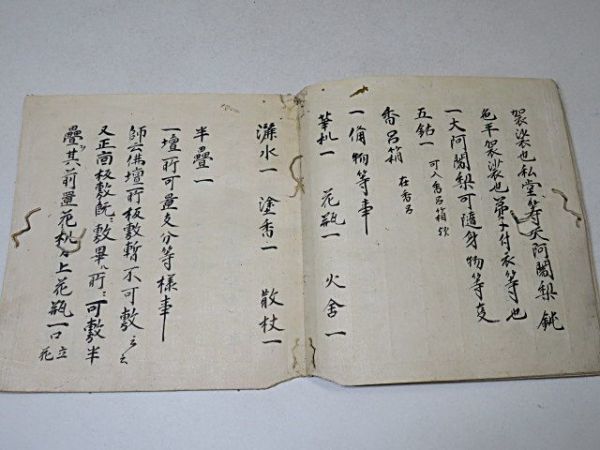 袈裟也私堂等大阿闍梨鈍
色平袈裟也弟子付衣等也
一大阿闍梨可随身物等事
五鈷一 可入香呂箱歟
香呂箱 在香呂
一備物等事
華机一 花瓶一 火舎一
灑水一 塗香一 散杖一
半疊一
一壇所可置支分等様事
師云佛壇所板敷暫不可敷云云
又正面板敷既敷畢所可敷半
疊其前置花机々上花瓶一口立
花